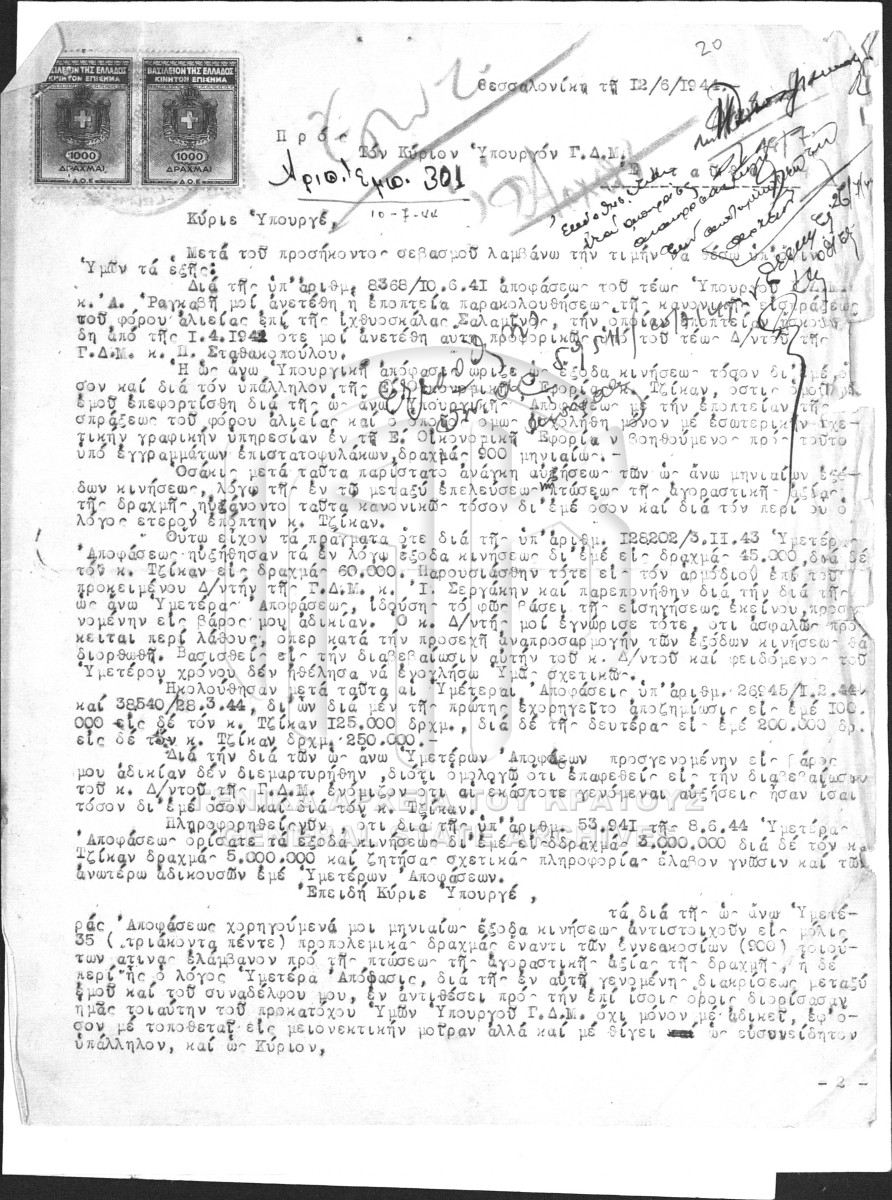 20
ΒΑΣΙΛΕΙΟΝ ΤΗΣ ΕΛΛΑΔΟΣ
ΚΙΝΗΤΟΝ ΕΠΙΣΗΜΑ
1000
ΔΡΑΧΜΑΙ
ΒΑΣΙΛΕΙΟΝ ΤΗΣ ΕΛΛΑΔΟΣ
ΚΙΝΗΤΟΝ ΕΠΙΣΗΜΑ
1000
ΔΡΑΧΜΑΙ
Θεσσαλονίκη τῇ 12/6/1944.
Π ρ ό ς
Τόν Κύριον Ὑπουργόν Γ.Δ.Μ.
Ἀριθ. Ἐμπ. 301
10-7-44
Κύριε Ὑπουργέ,
Μετά τοῦ προσήκοντος σεβασμοῦ λαμβάνω τήν τιμήν νά θέσω ὑπ'
Ὑμῖν τά ἑξῆς:
Διά τῆς ὑπ'ἀριθμ. 8368/10.6.41 ἀποφάσεως τοῦ τέως Ὑπουργοῦ
κ. Α. Ραγκαβῆ μοί ἀνετέθη ἡ ἐποπτεία παρακολουθήσεως τῆς κανονικῆς εἰσπράξεως
τοῦ φόρου ἁλιείας ἐπί τῆς ἰχθυοσκάλας Σαλαμῖνος, τήν ὁποίαν ἐποπτείαν ἤσκουν
δη ἀπό τῆς 1.4.1941 ὅτε μοί ἀνετέθη αὕτη προφορικῶς ὑπό τοῦ τέως Δ/ντοῦ τῆς
Γ.Δ.Μ. κ. Π. Σταθακοπούλου.
Ἡ ὡς ἄνω Ὑπουργική ἀπόφασις ὥριζε ὡς ἔξοδα κινήσεως τόσον δι'ἐμέ, ὅ
σον καί διά τόν ὑπάλληλον τῆς Ε. Οἰκονομικῆς Ἐφορίας κ. Τζίκαν, ὅστις ὁμοῦ μέ
ἐμοῦ ἐπεφορτίσθη διά τῆς ὡς ἄνω Ὑπουργικῆς Ἀποφάσεως μέ τήν ἐποπτείαν τῆς
σπράξεως τοῦ φόρου ἁλιείας καί ὁ ὁποῖος ὅμως ἠσχολήθη μόνον μέ ἐσωτερικήν σχε
τικήν γραφικήν ὑπηρεσίαν ἐν τῇ Ε. Οἰκονομικῇ Ἐφορίᾳ ν βοηθούμενος πρός τοῦτο
ὑπό ἐγγραμμάτων ἐπιστατοφυλάκων, δραχμάς 900 μηνιαίως.-
Ὁσάκις μετά ταῦτα παρίστατο ἀνάγκη αὐξήσεως τῶν ὡς ἄνω μηνιαίων ἐξό
δων κινήσεως, λόγῳ τῆς ἐν τῷ μεταξύ ἐπελεύσεως πτώσεως τῆς ἀγοραστικῆς ἀξίας
τῆς δραχμῆς, ηὐξάνοντο ταῦτα κανονικῶς τόσον δι'ἐμέ ὅσον καί διά τόν περί οὗ ὁ
λόγος ἕτερον ἐπόπτην κ. Τζίκαν.
Οὕτω εἶχον τά πράγματα ὅτε διά τῆς ὑπ'ἀριθμ. 128202/3.11.43 Ὑμετέρας
Ἀποφάσεως ηὐξήθησαν τά ἐν λόγῳ ἔξοδα κινήσεως δι'ἐμέ εἰς δραχμάς 45.000, διά δέ
τόν κ. Τζίκαν εἰς δραχμάς 60.000. Παρουσιάσθην τότε εἰς τόν ἁρμόδιον ἐπί τοῦ
προκειμένου Δ/ντήν τῆς Γ.Δ.Μ. κ. Ἰ. Σεργάκην καί παρεπονήθην διά τήν διά τῆς
ὡς ἄνω Ὑμετέρας Ἀποφάσεως, ἰδούσης τό φῶς βάσει τῆς εἰσηγήσεως ἐκείνου, προσγε
νομένην εἰς βάρος μου ἀδικίαν. Ὁ κ. Δ/ντής μοί ἐγνώρισε τότε, ὅτι ἀσφαλῶς πρό
κειται περί λάθους, ὅπερ κατά τήν προσεχῆ ἀναπροσαρμογήν τῶν ἐξόδων κινήσεως θά
διορθωθῇ. Βασισθείς εἰς τήν διαβεβαίωσιν αὐτήν τοῦ κ. Δ/ντοῦ καί φειδόμενος τοῦ
Ὑμετέρου χρόνου δέν ἠθέλησα νά ἐνοχλήσω Ὑμᾶς σχετικῶς.
Ἠκολούθησαν μετά ταῦτα αἱ Ὑμέτεραι Ἀποφάσεις ὑπ'ἀριθμ. 26945/1.2.44
καί 38540/28.3.44, δι'ὧν διά μέν τῆς πρώτης ἐχορηγεῖτο ἀποζημίωσις εἰς ἐμέ 100.
000 εἰς δέ τόν κ. Τζίκαν 125.000 δρχμ., διά δέ τῆς δευτέρας εἰς ἐμέ 200.000 δρ.
εἰς δέ τόν κ. Τζίκαν δρχμ. 250.000.-
Διά τήν διά τῶν ὡς ἄνω Ὑμετέρων Ἀποφάσεων προσγενομένην εἰς βάρος
μου ἀδικίαν δέν διεμαρτυρήθην, διότι ὁμολογῶ ὅτι ἐπαφεθείς εἰς τήν διαβεβαίωσιν
τοῦ κ. Δ/ντοῦ τῆς Γ.Δ.Μ. ἐνόμιζον ὅτι αἱ ἑκάστοτε γενόμεναι αὐξήσεις ἦσαν ἴσαι
τόσον δι'ἐμέ ὅσον καί διά τόν κ. Τζίκαν.
ΓΕΝΙΚΑ ΑΡΧΕΙΑ ΤΟΥ ΚΡΑΤΟΥΣ
GENERAL STATE ARCHIVES
Πληροφορηθείς νῦν ὅτι διά τῆς ὑπ'ἀριθμ. 53.941 τῆς 8.6.44 Ὑμετέρας
Ἀποφάσεως ὁρίσατε τά ἔξοδα κινήσεως δι'ἐμέ εἰς δραχμάς 3.000.000 διά δέ τόν κ.
Τζίκαν δραχμάς 5.000.000 καί ζητήσας σχετικάς πληροφορίας ἔλαβον γνῶσιν καί τῶν
ἀνωτέρω ἀδικουσῶν ἐμέ Ὑμετέρων Ἀποφάσεων.
Ἐπειδή Κύριε Ὑπουργέ,
τά διά τῆς ὡς ἄνω Ὑμετέ-
ρας Ἀποφάσεως χορηγούμενά μοι μηνιαίως ἔξοδα κινήσεως ἀντιστοιχοῦν εἰς μόλις
35 ( τριάκοντα πέντε) προπολεμικάς δραχμάς ἔναντι τῶν ἐννεακοσίων (900) τοιού
των ἅτινα ἐλάμβανον πρό τῆς πτώσεως τῆς ἀγοραστικῆς ἀξίας τῆς δραχμῆς, ἡ δέ
περί ἧς ὁ λόγος Ὑμετέρα Ἀπόφασις, διά τῆς ἐν αὐτῇ γενομένης διακρίσεως μεταξύ
ἐμοῦ καί τοῦ συναδέλφου μου, ἐν ἀντιθέσει πρός τήν ἐπί ἴσοις ὅροις διορίσασαν
ἡμᾶς τοιαύτην τοῦ προκατόχου Ὑμῶν Ὑπουργοῦ Γ.Δ.Μ. ὄχι μόνον μέ ἀδικεῖ, ἐφ'ὅ-
σον μέ τοποθετεῖ εἰς μειονεκτικήν μοῖραν ἀλλά καί μέ θίγει ὡς εὐσυνείδητον
ὑπάλληλον, καί ὡς Κύριον,
- 2 -